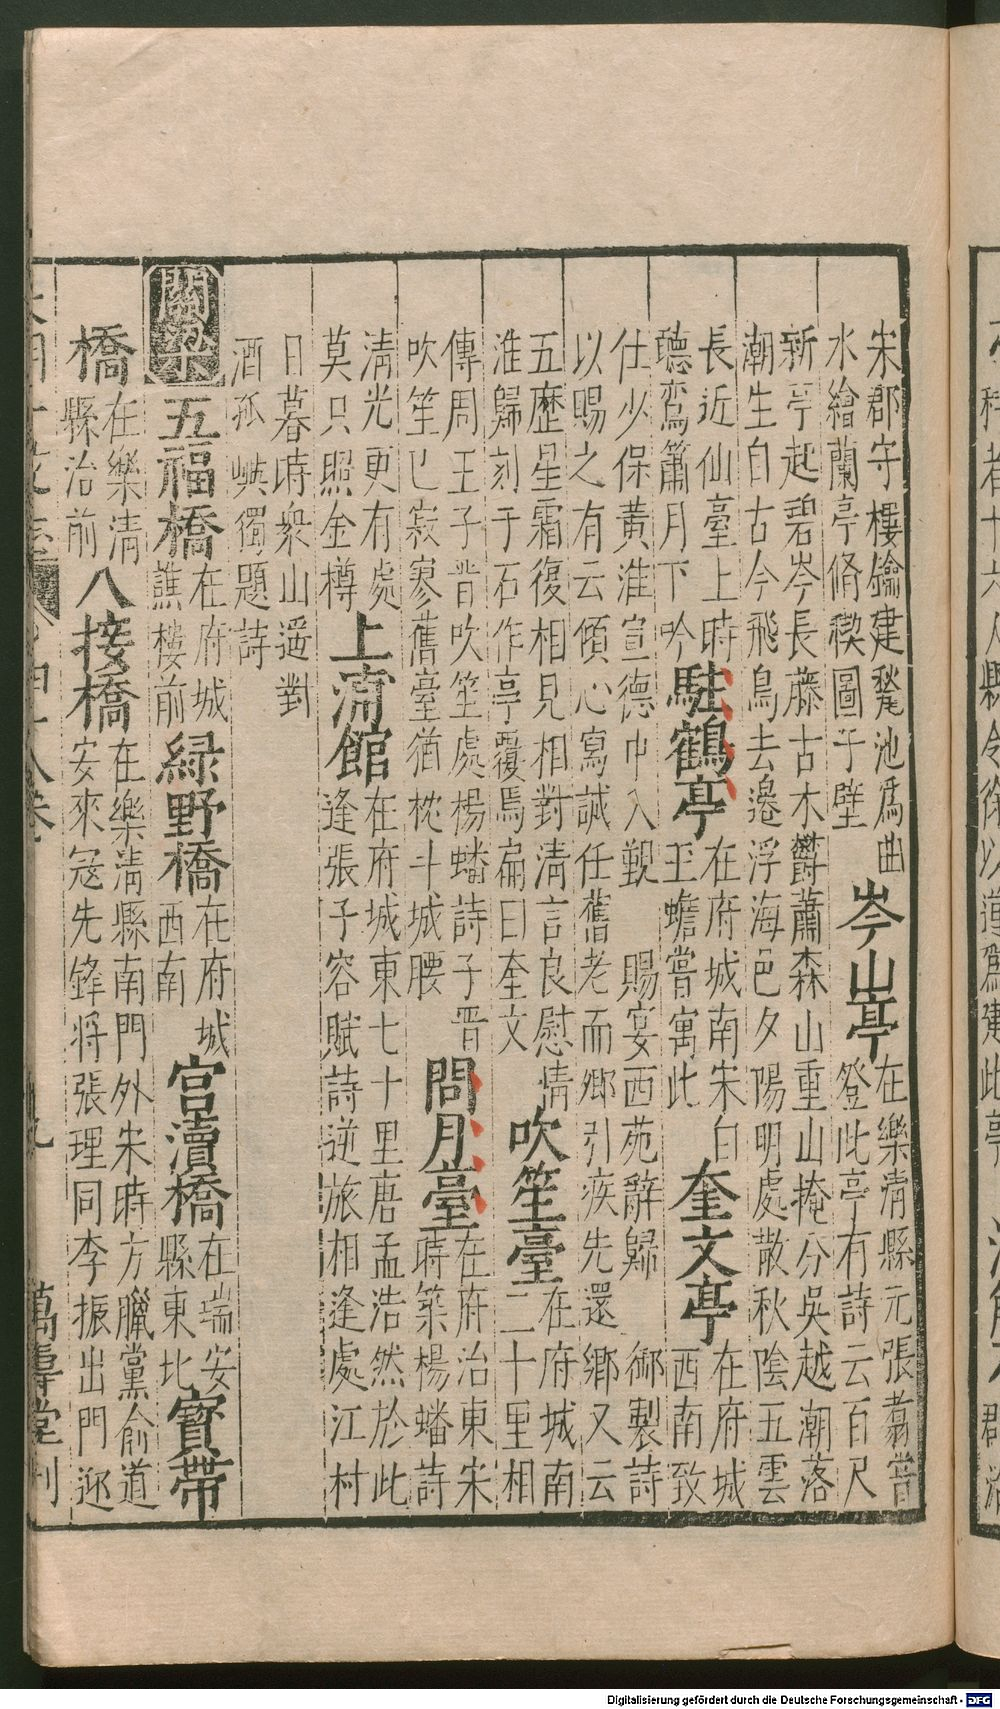 宋郡守樓鑰建甃池爲曲
水繪蘭亭脩禊圖于壁
岑山亭
在樂清縣元張翥嘗
登此亭有詩云百尺
新亭起碧岑長藤古木欝蕭森山重山掩分吳越潮落
潮生自古今飛鳥去邊浮海邑夕陽明處散秋陰五雲
長近仙臺上時
聽鸞簫月下吟
駐鶴亭
在府城南宋白
玉蟾嘗寓此
奎文亭
在府城
西南致
仕少保黃淮宣德中入觐 賜宴西苑辭歸 御製詩
以賜之有云傾心寫誠任舊老而鄉引疾先還鄉又云
五歷星霜復相見相對清言良慰情
淮歸刻于石作亭覆焉扁曰奎文
吹笙臺
在府城南
二十里相
傳周王子晋吹笙處楊蟠詩子晋
吹笙已寂寥舊臺猶枕斗城腰
問月臺
在府治東宋
時築楊蟠詩
清光更有處
莫只照金樽
上浦館
在府城東七十里唐孟浩然於此
逢張子容賦詩逆旅相逢處江村
日暮時衆山遥對
酒孤嶼獨題詩
關梁
五福橋
在府城
譙樓前
緑野橋
在府城
西南
宫瀆橋
在瑞安
縣東北
寳帶
橋
在樂清
縣治前
八接橋
在樂清縣南門外宋時方臘黨俞道
安來寇先鋒将張理同李振出門迎
萬壽堂刊
Digitalisierung gefördert durch die Deutsche Forschungsgemeinschaft - DFG